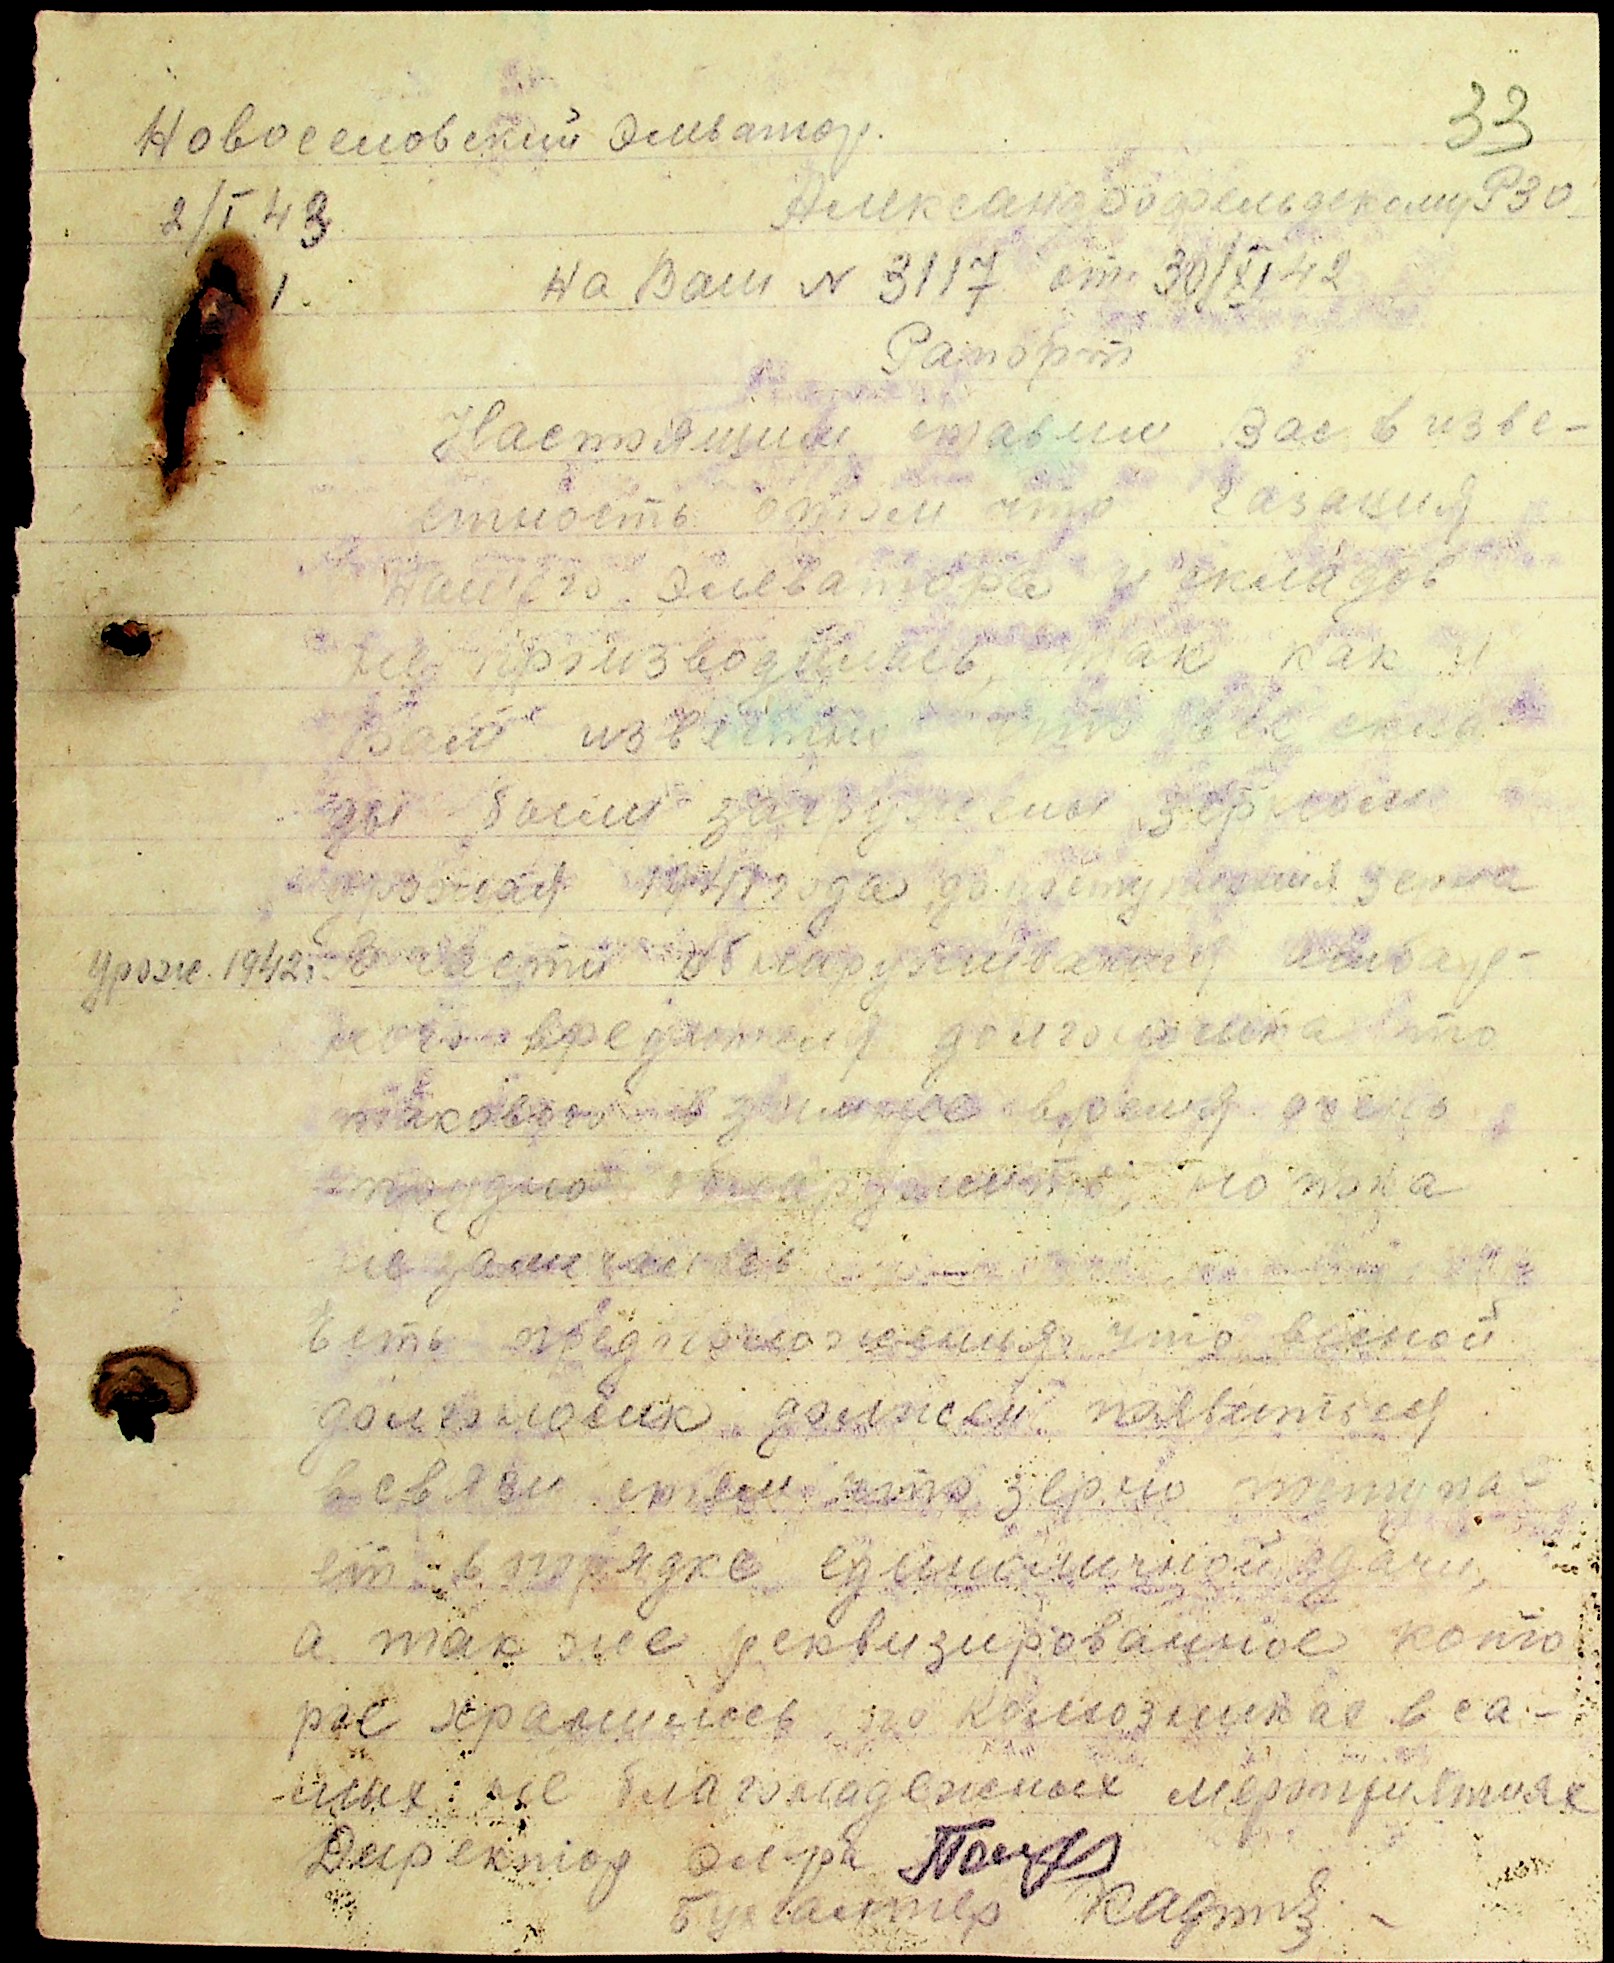 33
Новоселовский Элеватор.
2/I 43
Александрофельдскому РЗО
1.
на Ваш № 3117 от 30/XI 42
Рапорт
Настоящим ставим Вас в изве-
стность отом что газация
нашего Элеватора и складов
не производилась, так как и
Вам известно что все скла
ды были загружены зерном
урожая 1941 года до поступления зерна
Урож. 1942г. в части обнаруживания амбар-
ного вредителя долгоносика то
такового в зимнее время очень
трудно обнаружить, но пока
не замечалось
Есть предположения что весной
долгоносик должен появиться
всвязи стем что зерно поступа-
ет в порядке единоличной сдачи,
а так же реквизированное кото
рое хранилось по колхозникас в са-
мых не благонадежных мероприятиях
Директор Эл-ра
Бухгалтер